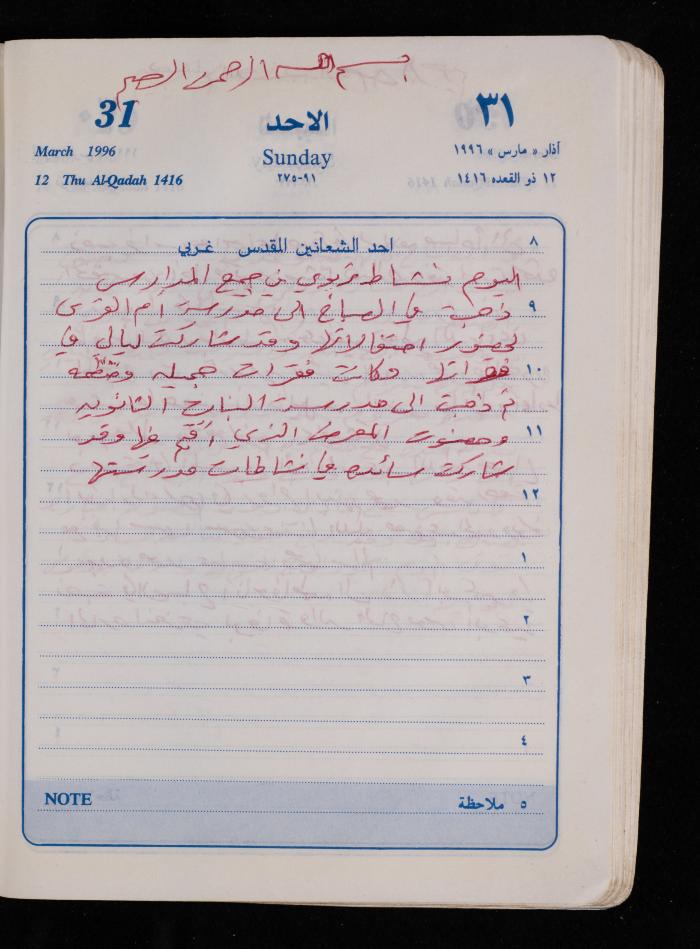 بسم الله الرحمن الرحيم
31 الاحد ٣١
March 1996 Sunday آذار « مارس » ١٩٩٦
12 Thu Al-Qadah 1416 ٩١-٢٧٥ ١٢ ذو القعده ١٤١٦
٨ احد الشعانين المقدس غربي
اليوم نشاط تربوي في جميع المدارس
٩ ذهبت في الصباح الى مدرسة أم القرى
لحضور احتفالاتها وقد شاركت ليالي في
١٠ فقراتها وكانت فقرات جميله
ثم ذهبت الى مدرسة البنات الثانويه
١١ وحضرت المعرض الذي أقيم فيها وقد
شاركت سائده في نشاطات مدرستها
١٢
١
٢
٣
٤
NOTE ٥ ملاحظة